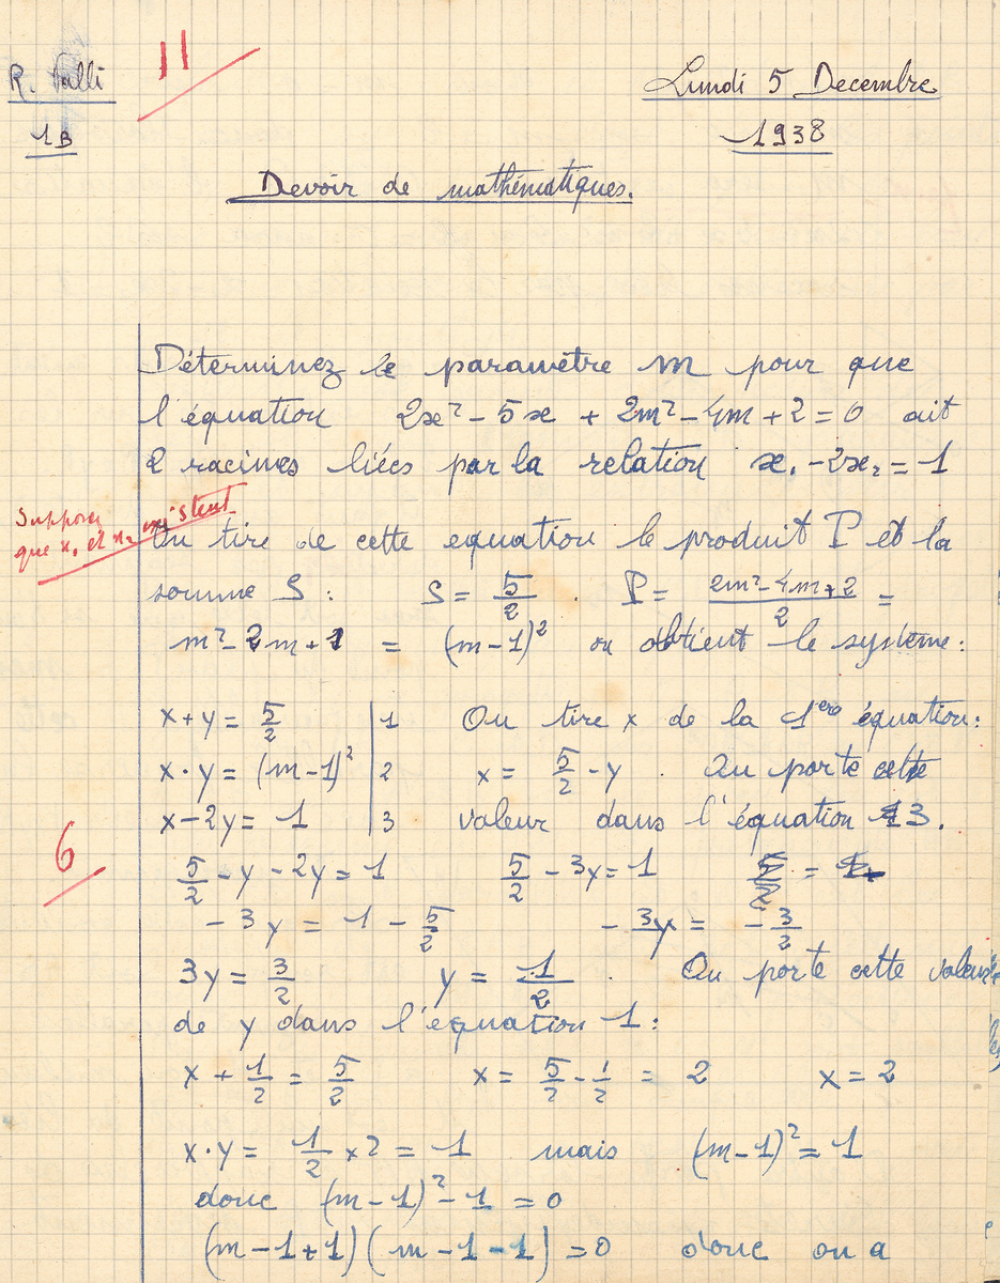 11
R. Valli
Lundi 5 Decembre
1B
1938
Devoir de mathématiques.
Déterminez le paramètre m pour que
l'équation 2x² - 5x + 2m² - 4m + 2 = 0 ait
2 racines liées par la relation x₁ - 2x₂ = 1
Supposer
que x₁ et x₂ existent
On tire de cette equation le produit P et la
somme S : S = 5/2 . P = (2m² - 4m + 2)/2 =
m² - 2m + 1 = (m - 1)² on obtient le système :
x + y = 5/2 | 1 On tire x de la 1ère équation :
x · y = (m - 1)² | 2 x = 5/2 - y . On porte cette
x - 2y = 1 | 3 valeur dans l'équation 3.
6
5/2 - y - 2y = 1 5/2 - 3y = 1
- 3y = 1 - 5/2 - 3y = - 3/2
3y = 3/2 y = 1/2 . On porte cette valeur
de y dans l'equation 1 :
x + 1/2 = 5/2 x = 5/2 - 1/2 = 2 x = 2
x · y = 1/2 × 2 = 1 mais (m - 1)² = 1
donc (m - 1)² - 1 = 0
(m - 1 + 1) (m - 1 - 1) = 0 donc on a